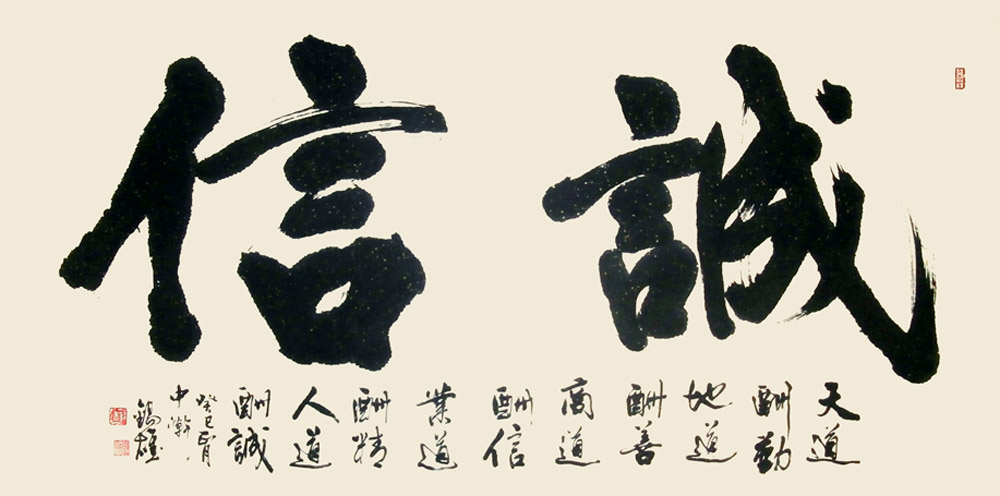 誠信
天道
酬勤
地道
酬善
商道
酬信
業道
酬精
人道
酬誠
癸巳
中澣
錫雄